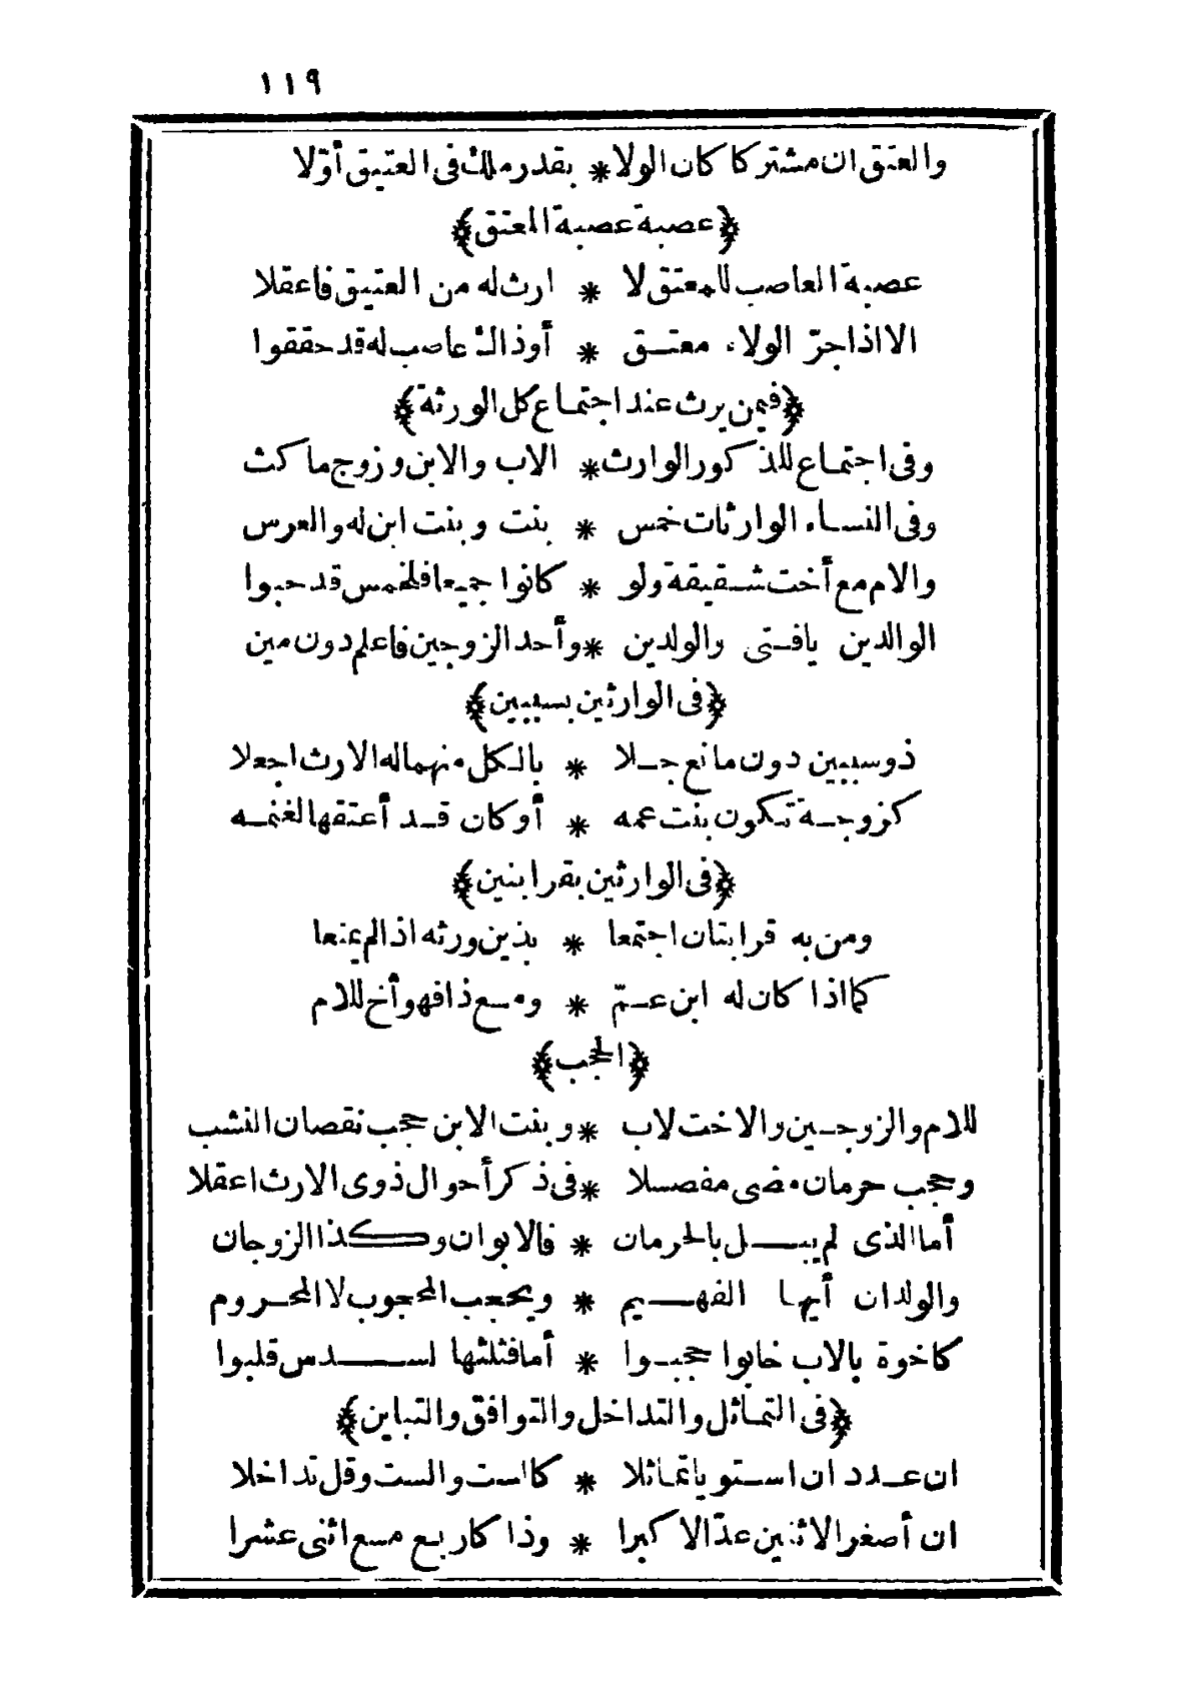 ١١٩
والعتق ان مشتركا كان الولا * بقدر ملك فى العتيق أوّلا
﴿عصبة عصبة المعتق﴾
عصبة العاصب للمعتق لا * ارث له من العتيق فاعقلا
الا اذا جرّ الولاء معتق * أوذاك عاصب له قد حققوا
﴿فيمن يرث عند اجتماع كل الورثة﴾
وفى اجتماع للذكور الوارث * الاب والابن وزوج ماكث
وفى النساء الوارثات خمس * بنت وبنت ابن له والعرس
والام مع أخت شقيقة ولو * كانوا جميعا فلخمس قد حبوا
الوالدين يافتى والولدين * وأحد الزوجين فاعلم دون مين
﴿فى الوارثين بسببين﴾
ذو سببين دون مانع جلا * بالكل منهما له الارث اجعلا
كزوجة تكون بنت عمه * أوكان قد أعتقها لغنمه
﴿فى الوارثين بقرابتين﴾
ومن به قرابتان اجتمعا * بذين ورثه اذا لم يمنعا
كما اذا كان له ابن عمّ * ومع ذا فهو أخ للام
﴿الحجب﴾
للام والزوجين والاخت لاب * وبنت الابن حجب نقصان النشب
وحجب حرمان مضى مفصلا * فى ذكر أحوال ذوى الارث اعقلا
أما الذى لم يبل بالحرمان * فالابوان وكذا الزوجان
والولدان أيها الفهيم * ويحجب المحجوب لا المحروم
كاخوة بالاب خابوا حجبوا * أما فثلثها لسدس قلبوا
﴿فى التماثل والتداخل والتوافق والتباين﴾
ان عدد ان استويا تماثلا * كالست والست وقل تداخلا
ان أصغر الاثنين عدّ الاكبرا * وذا كاربع مع اثنى عشرا